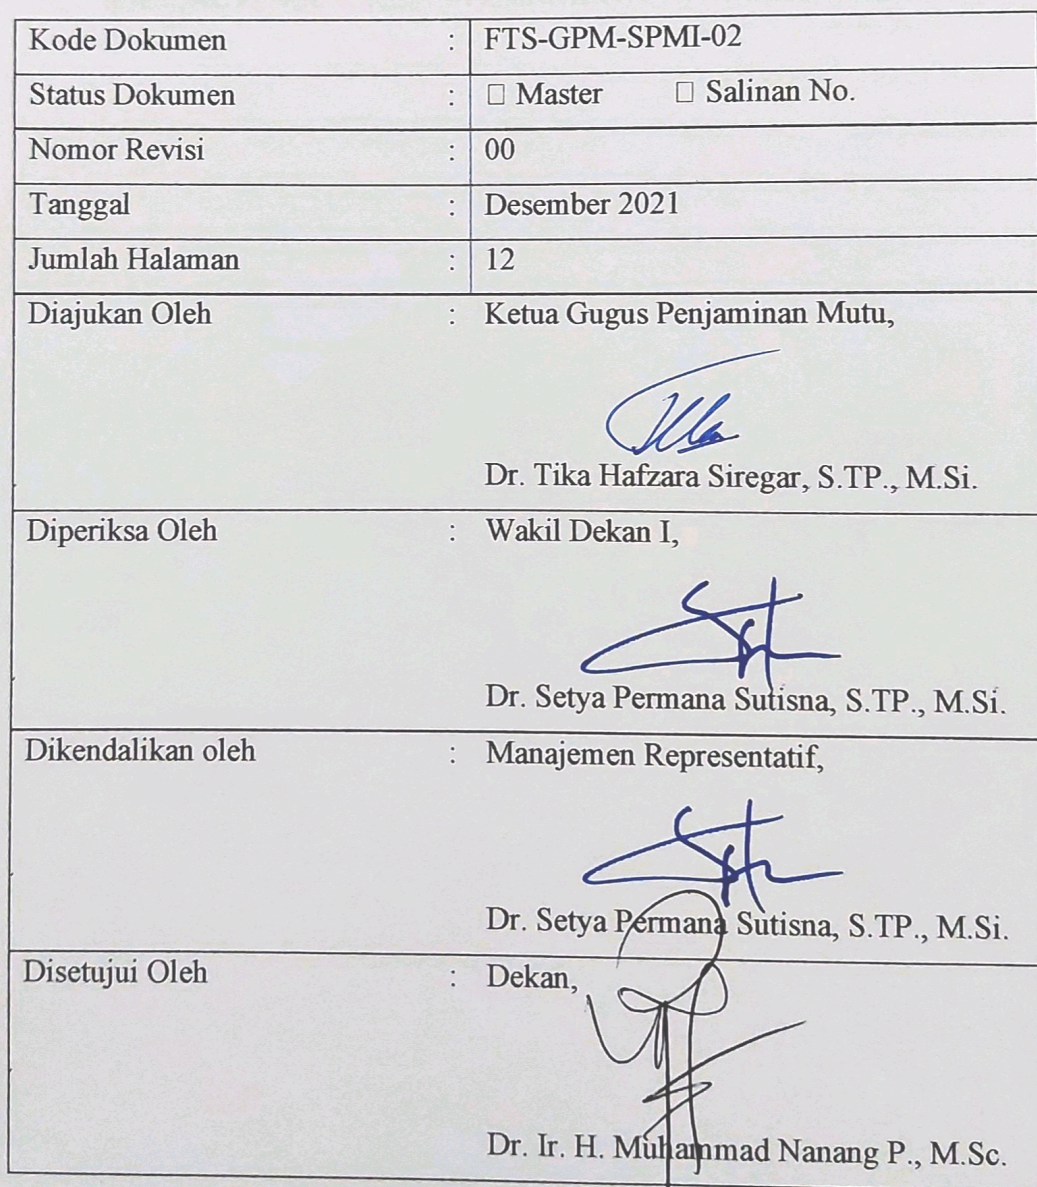 Kode Dokumen : FTS-GPM-SPMI-02
Status Dokumen : □ Master □ Salinan No.
Nomor Revisi : 00
Tanggal : Desember 2021
Jumlah Halaman : 12
Diajukan Oleh : Ketua Gugus Penjaminan Mutu,
Dr. Tika Hafzara Siregar, S.TP., M.Si.
Diperiksa Oleh : Wakil Dekan I,
Dr. Setya Permana Sutisna, S.TP., M.Si.
Dikendalikan oleh : Manajemen Representatif,
Dr. Setya Permana Sutisna, S.TP., M.Si.
Disetujui Oleh : Dekan,
Dr. Ir. H. Muhammad Nanang P., M.Sc.